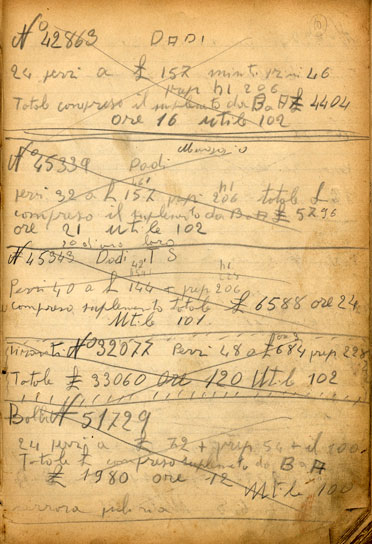 N° 42863 DADI
24 pezzi a £ 157 minuti pezzi 46
prep h1 206
Totale compreso il suplemento da B a A £ 4404
ore 16 utile 102
N° 45339 Dadi
pezzi 32 a £ 157 prep h1 206 totale £
compreso il suplemento da B a A £ 5796
ore 21 utile 102
N° 45343 Dadi T S
Pezzi 40 a £ 144 + prep h1 206
compreso suplemento totale £ 6588 ore 24
Utile 101
N° 032077 Pezzi 48 a £ 684 prep 228
Totale £ 33060 ore 120 Utile 102
Bolla N 51729
24 pezzi a £ 72 + prep 54 + il 100
Totale £ compreso suplemento da B a A
£ 1980 ore 12
Utile 100